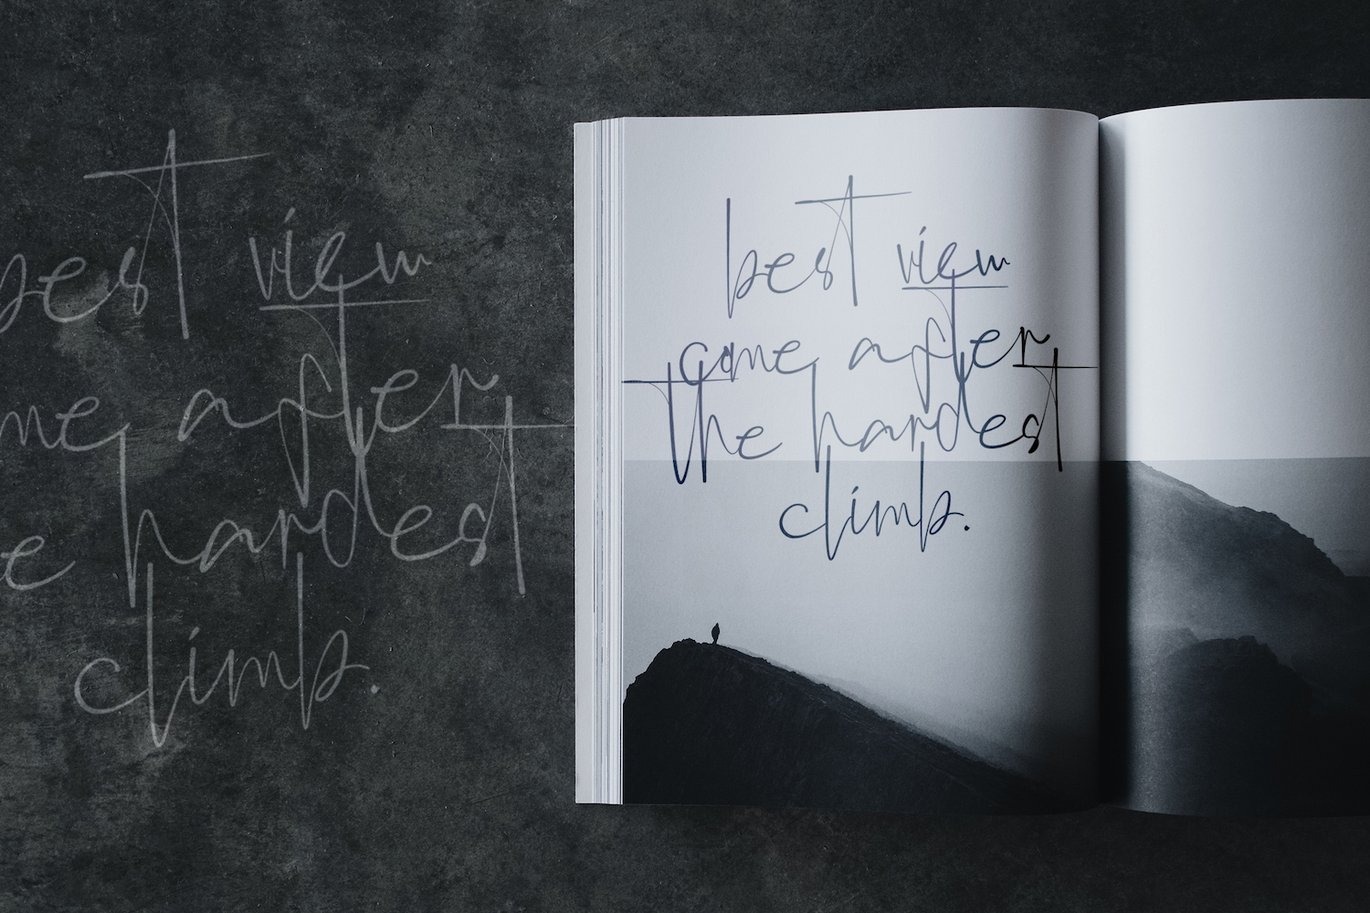 best view
me after
e hardest
climb.
best view
come after
the hardest
climb.